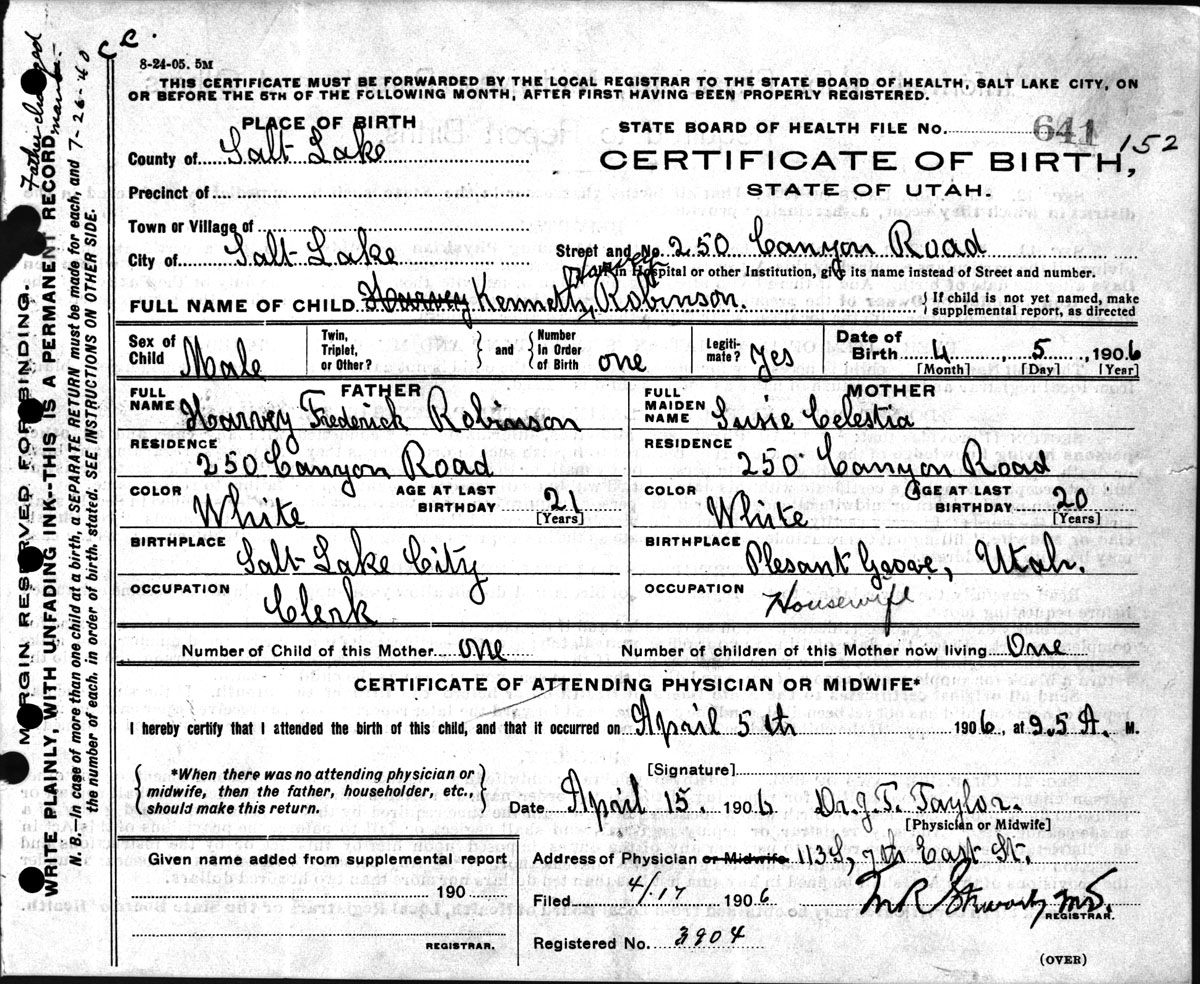 C C.
8-24-05. 5M
THIS CERTIFICATE MUST BE FORWARDED BY THE LOCAL REGISTRAR TO THE STATE BOARD OF HEALTH, SALT LAKE CITY, ON
OR BEFORE THE 5TH OF THE FOLLOWING MONTH, AFTER FIRST HAVING BEEN PROPERLY REGISTERED.
PLACE OF BIRTH
STATE BOARD OF HEALTH FILE NO. 641 152
County of Salt Lake
CERTIFICATE OF BIRTH,
Precinct of
STATE OF UTAH.
Town or Village of
City of Salt Lake Street and No. 250 Canyon Road
If in Hospital or other Institution, give its name instead of Street and number.
Harvey
FULL NAME OF CHILD Harvey Kenneth Robinson. If child is not yet named, make
supplemental report, as directed
Sex of Child Male Twin, Triplet, or Other? and Number in Order of Birth one Legiti-mate? Yes Date of Birth 4, 5, 1906
[Month] [Day] [Year]
FATHER MOTHER
FULL NAME Harvey Frederick Robinson FULL MAIDEN NAME Susie Celestia
RESIDENCE 250 Canyon Road RESIDENCE 250 Canyon Road
COLOR White AGE AT LAST BIRTHDAY 21 [Years] COLOR White AGE AT LAST BIRTHDAY 20 [Years]
BIRTHPLACE Salt Lake City BIRTHPLACE Plesant Grove, Utah.
OCCUPATION Clerk OCCUPATION Housewife
Number of Child of this Mother one Number of children of this Mother now living One
CERTIFICATE OF ATTENDING PHYSICIAN OR MIDWIFE*
I hereby certify that I attended the birth of this child, and that it occurred on April 5th 1906, at 9.5 A. M.
*When there was no attending physician or
midwife, then the father, householder, etc.,
should make this return.
[Signature]
Date April 15. 1906 Dr. J. T. Taylor.
[Physician or Midwife]
Given name added from supplemental report Address of Physician or Midwife 113 S, 7th East St.
190 Filed 4/17 1906
REGISTRAR.
REGISTRAR. Registered No. 3904
(OVER)
Father changed
7-26-40
MARGIN RESERVED FOR BINDING.
WRITE PLAINLY, WITH UNFADING INK--THIS IS A PERMANENT RECORD.
N. B.--In case of more than one child at a birth, a SEPARATE RETURN must be made for each, and
the number of each, in order of birth, stated. SEE INSTRUCTIONS ON OTHER SIDE.